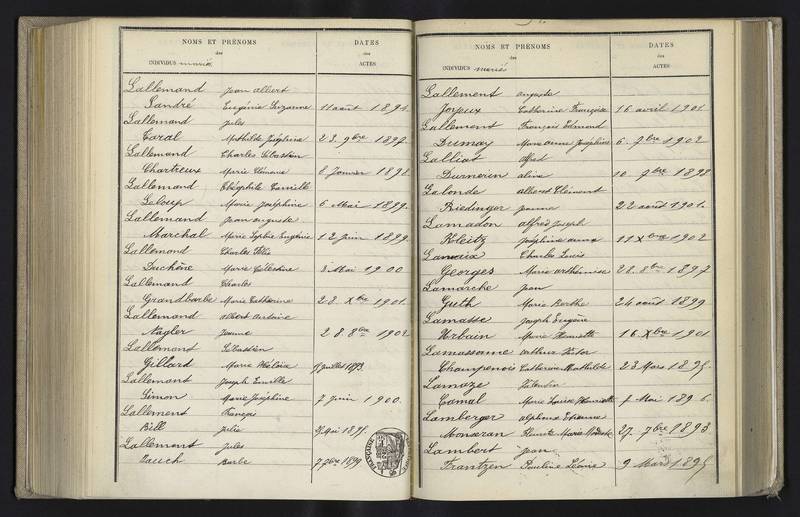 NOMS ET PRÉNOMS
des
INDIVIDUS mariés
DATES
des
ACTES
Lallemand Jean Albert
Sandré Eugénie Suzanne 11 août 1891.
Lallemand Jules
Caral Mathilde Joséphine 23. 9bre 1897.
Lallemand Charles Sébastien
Chartreux Marie Clémence 6 Janvier 1898.
Lallemand Théophile Camille
Leloup Marie Joséphine 6 Mai 1899.
Lallemand Jean Auguste
Marchal Marie Sophie Eugénie 12 Juin 1899.
Lallemand Charles Félix
Duchêne Marie Célestine 8 Mai 1900
Lallemand Charles
Grandbarbe Marie Catherine 28. Xbre 1901.
Lallemand Albert Antoine
Nagler Jeanne 28 8bre 1902
Lallemant Sébastien
Gillard Marie Juillet 1893.
Lallemant Joseph Emille
Simon Marie Joséphine 7 Juin 1900.
Lallement François
Bill Julie Mai 1895.
Lallement Jules
Barbe 7 9bre 1899
NOMS ET PRÉNOMS
des
INDIVIDUS mariés
DATES
des
ACTES
Lallement Auguste
Joyeux Catherine Françoise 16 avril 1901.
Lallement François Edmond
Dumay Marie Anne Joséphine 6. 7bre 1902
Lalliat Alfred
Durnerin Aline 10 7bre 1898
Lalonde Albert Clément
Riedinger Jeanne 22 août 1901.
Lamadon Alfred Joseph
Kleitz Joséphine Anna 11 Xbre 1902
Lamaix Charles Louis
Georges Marie Arthémise 28. 8bre 1897
Lamarche Jean
Guth Marie Berthe 24 août 1899
Lamasse Joseph Eugène
Urbain Marie Henriette 16. Xbre 1901
Lamassonne Arthur Victor
Champenois Catherine Mathilde 23 Mars 1895.
Lamaze Valentin
Camal Marie Louise Henriette Mai 1896.
Lamberger Alphonse Etienne
Monseran Marie 27. 9bre 1893
Lambert Jean
Frantzen Pauline 9 Mars 1895
FRANÇAISE